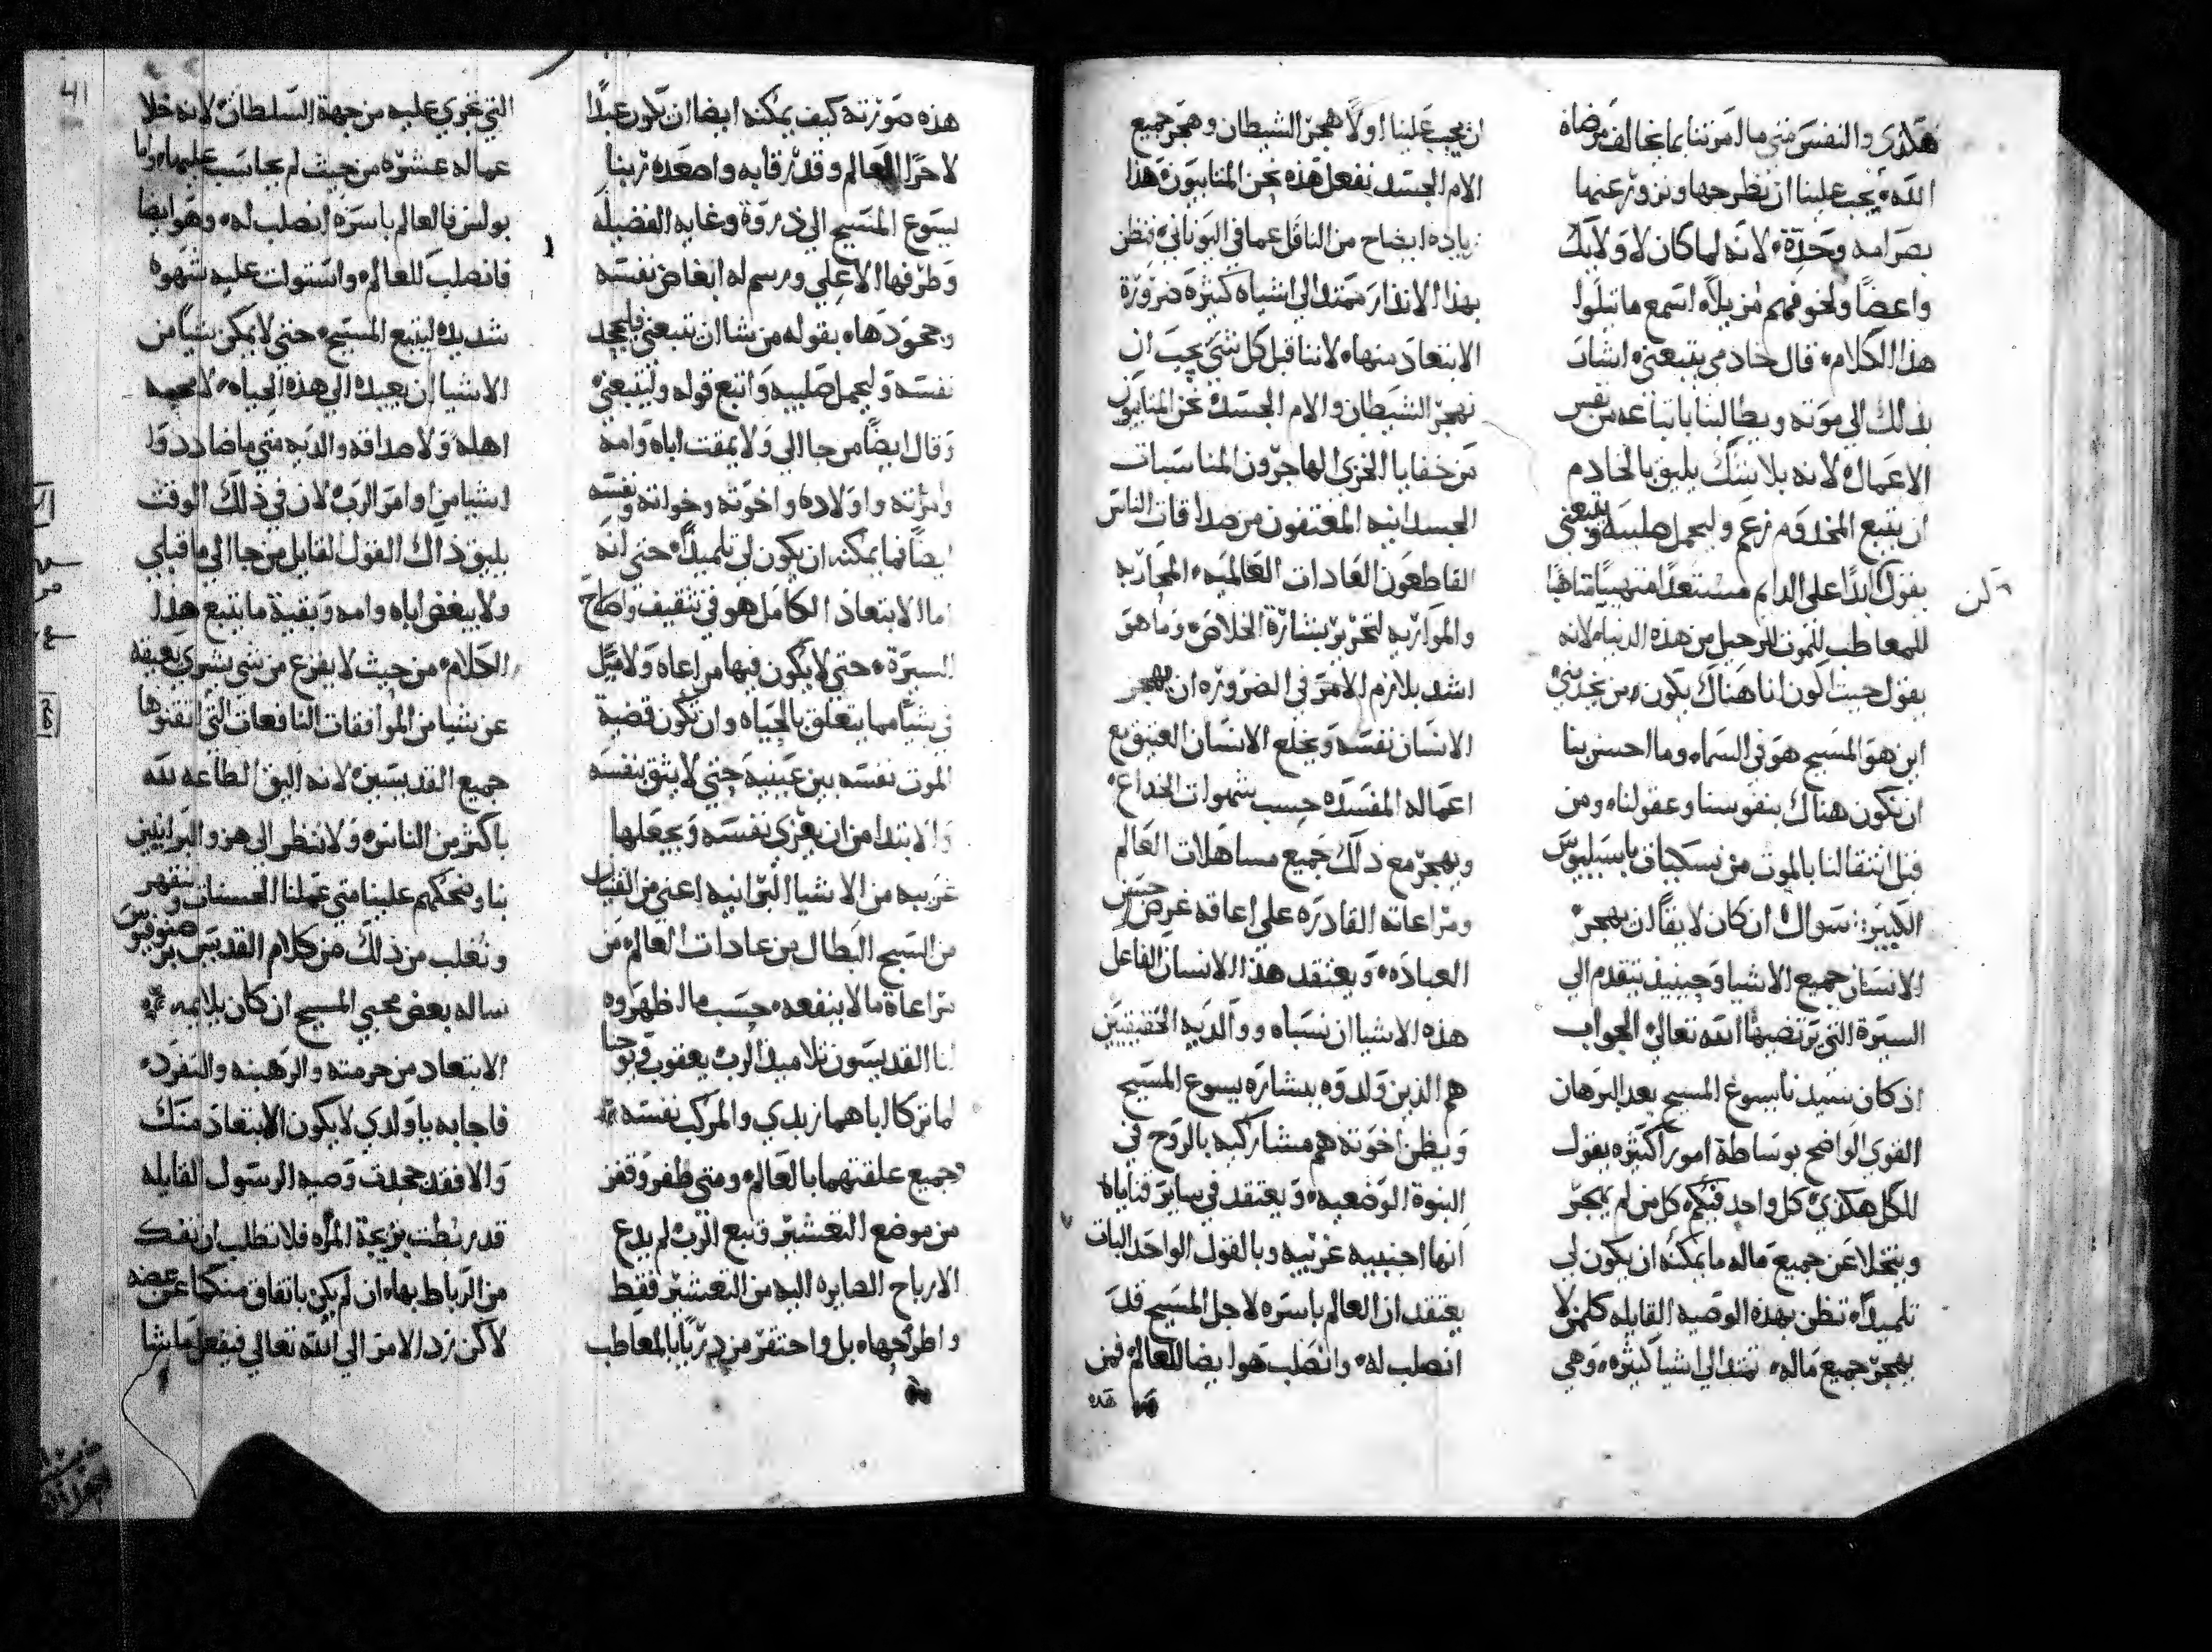 هكذي والنفس متي ما امرتنا بما يخالف مرضاة
الله يجب علينا ان نطرحها ونزور عنها
بصرامه وحدة لانه لما كان لاولايك
واعضا ولنحوفهم من بلاه اسمع ما يتلوا
هذا الكلام قال خادمي يتبعني اشار
بذلك الي موته ويطالبنا باتباعه من نفس
الاعمال لانه بلا شك يليق بالخادم
ان يتبع المخدوم زعم وليحمل صليبه ويتبعني
يقول كن ابدًا على الدايم مستعدًا متهييًا متاهبًا
للمعاطب للموت للرحيل من هذه الدنيا لانه
يقول حيث اكون انا هناك يكون من يخدمني
اين هو المسيح هو في السماء وما احسن بنا
ان نكون هناك بنفوسنا وعقولنا ومن
قبل انتقالنا بالموت من نسكيات باسيليوس
الكبير: سوال ان كان لايقًا ان يهجر
الانسان جميع الاشيا وحينيذ يتقدم الي
السيرة التي يرتضيها الله تعالى الجواب
اذ كان سيدنا يسوع المسيح بعد البرهان
القوي الواضح بوساطة امور اكثيره يقول
للكل هكذي كل واحد فيكم كل من لم يهجر
ويتخلا عن جميع ماله ما يمكنه ان يكون لي
تلميذًا تنظن بهذه الوصيه القايله كلمن لا
يهجر جميع ماله تمتد الي اشيا كثيره وهي
ان يجب علينا اولًا هجر الشيطان وهجر جميع
الام الجسد نفعل هذه نحن المنابيون هذا
زياده ايضاح من الناقل عما في اليوناني فنظن
بهذا الانذار ممتد الي اشياه كثيره ضرورة
الابتعاد منها لاننا قبل كل شي يجب ان
نهجر الشيطان والام الجسد نحن المنابيون
من خفايا الخزي الهاجرون المناسبات
الجسدانيه المعتفون من صداقات الناس
القاطعون العادات العالميه المحاربه
والمواربه لتحرير بشارة الخلاص وما هو
اشد بلازم الامر في الضروره ان يهجر
الانسان نفسه ويخلع الانسان العتيق مع
اعماله المفسده حسب شهوات الخداع
ويهجر مع ذلك جميع مساهلات العالم
ومراعاته القادره على اعاقه غرض حسن
العباده ويعتقد هذا الانسان الفاعل
هذه الاشيا ان نسباه ووالديه الحقيقيين
هم الذين ولدوه ببشاره يسوع المسيح
ويظن اخوته هم مشاركيه بالروح في
البنوة الوضعيه ويعتقد في ساير قناياه
انها اجنبيه غريبه وبالقول الواحد البات
يعتقد ان العالم باسره لاجل المسيح قد
انصلب له وانصلب هو ايضا للعالم فمن
هذه
هذه صورته كيف يمكنه ايضا ان يكون عبدًا
لا حرًا للعالم وقد رقا به واصعده ربنا
يسوع المسيح الي ذروة وغايه الفضيله
وطرفها الاعلي ورسم له ابغاض نفسه
وجحودها بقوله من شا ان يتبعني فليجحد
نفسه وليحمل صليبه واتبع قوله وليتبعني
وقال ايضًا من جا الي ولا يمقت اباه وامه
وامرته واولاده واخوته وخواته ونفسه
ايضًا فما يمكنه ان يكون لي تلميذًا حتي انه
اما الابتعاد الكامل هو في تثقيف واصلاح
السيرة حتي لا يكون فيها مراعاه ولا ميل
في شيًا مما يتعلق بالحياه وان تكون قضية
الموت نفسه بين عينيه حتي لا يثق بنفسه
والابتدا من ان يعزي نفسه ويجعلها
غريبه من الاشيا البرانيه اعني من القنيات
من السبح البطال من عادات العالم من
مراعاة ما لا ينفعه حسب ما اظهروه
لنا القديسون تلاميذ الرب يعقوب ويوحنا
لما تركا اباهما زبدي والمركب نفسه
وجميع علقتهما بالعالم ومتى ظفر وقفز
من موضع التعشير وتبع الرب لم يدع
الارباح الصايره اليه من التعشير فقط
واطرحها بل واحتقر من دربًا بالمعاطب
41
التي تجري عليه من جهة السلطان لانه خلا
عماله عشره من حيث لم يحاسب عليها واما
بولس فالعالم باسره انصلب له وهو ايضا
فانصلب للعالم واستولت عليه شهوه
شديده ليتبع المسيح حتي لا يمكن شيًا من
الاشيا ان يعيده الي هذه الحياه لا محبه
اهله ولا صداقه والديه متي ما ضاددوا
اشيا من اوامر الرب لان في ذلك الوقت
يليق ذاك القول القايل من جا الي ما قبلي
ولا يبغض اباه وامه وبقية ما يتبع هذا
الكلام من حيث لا يفزع من شي بشري يعيقه
عن شيا من الموافقات النافعات التي اتقنوها
جميع القديسين لانه اليق الطاعه لله
باكثر من الناس ولا ننظر الي هزو البرانيين
بنا وضحكهم علينا متي عملنا الحسنات ونقهر
ونغلب من ذلك من كلام القديس برصنوفيوس
ساله بعض محبي المسيح ان كان يلايمه
الابتعاد من حرمته والرهبنه والتفرد
فاجابه يا ولدي لا يكون الابتعاد منك
والا فقد جحدت وصيه الرسول القايله
قد ربطت بزيجة المراه فلا تطلب ان تفك
من الرباط بها ان لم يكن باتفاق منكما عن عضه
لاكن نرد الامر الي الله تعالي فيفعل ما شا